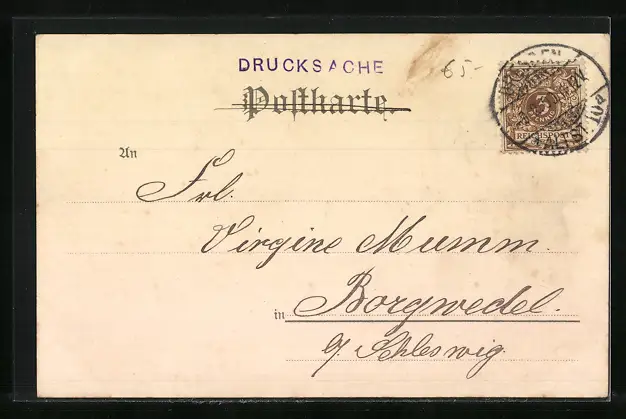 DRUCKSACHE
65-
Postkarte.
3
REICHSPOST
ALTST.
An
Frl.
Virgine Mumm.
in Borgwedel.
b/ Schleswig.